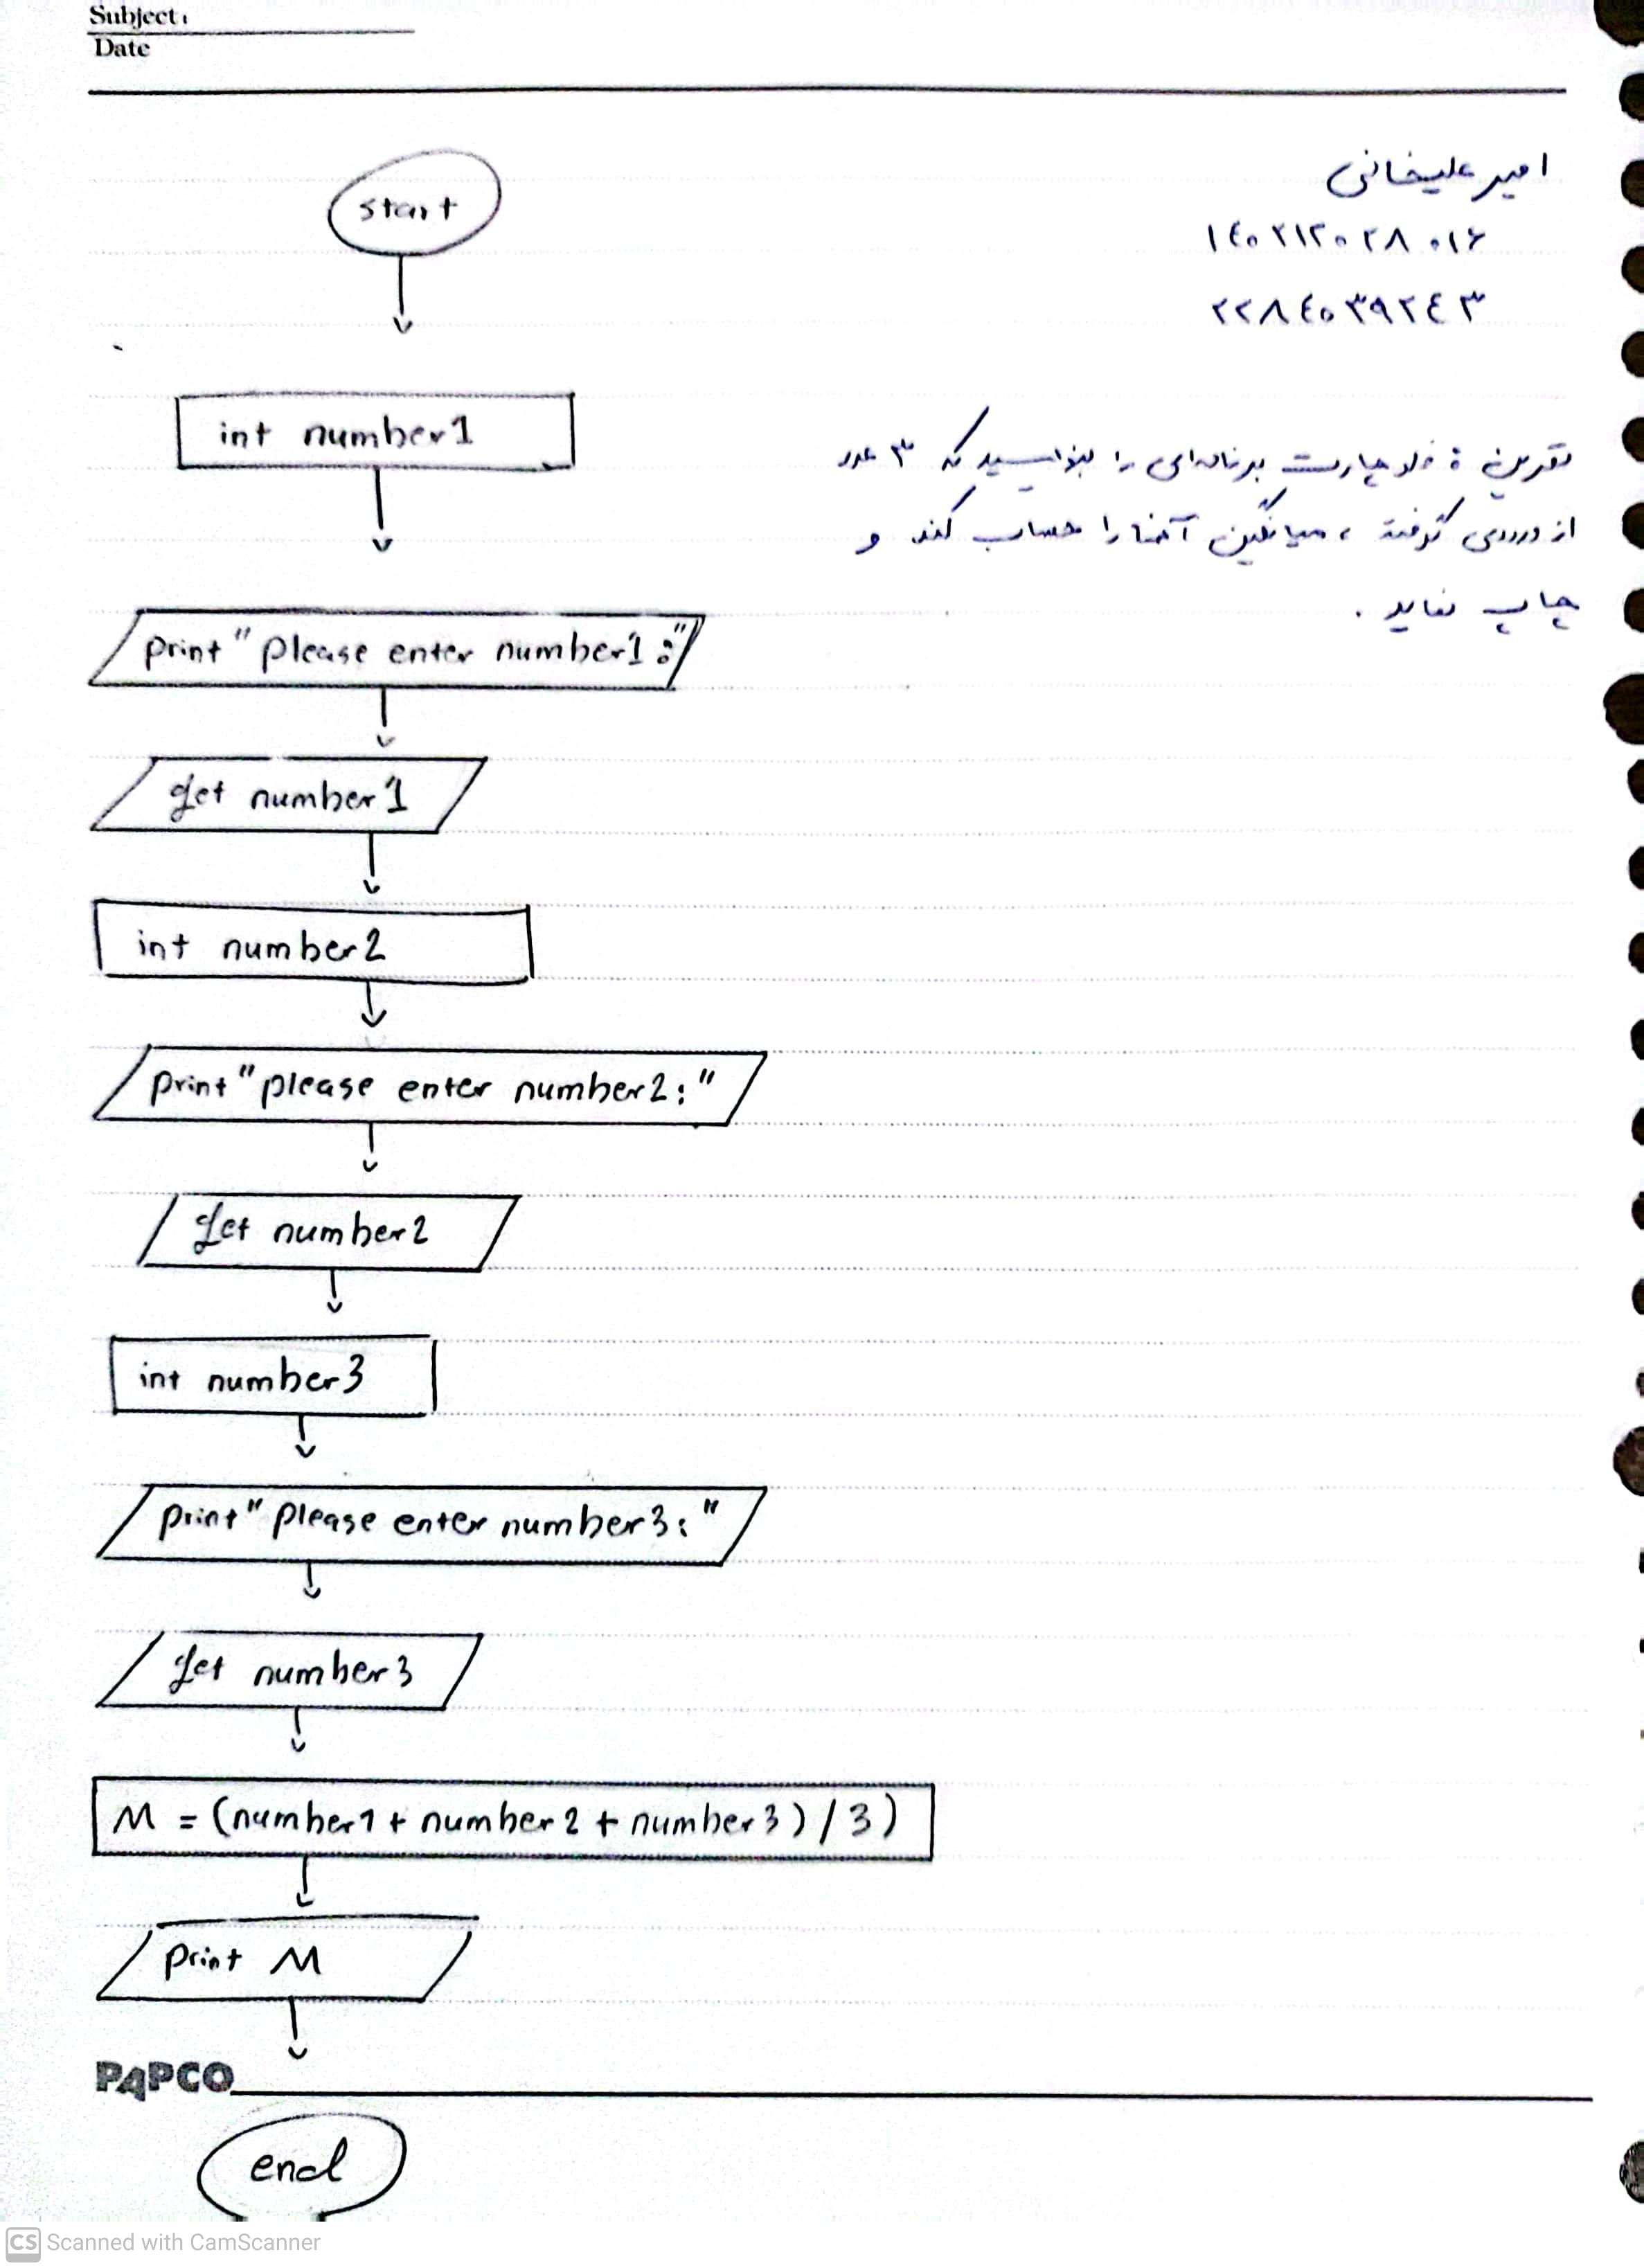 Subject:
Date
امیر علیخانی
۱۴۰۲۱۲۰۲۸۰۱۶
۲۲۸۴۰۳۹۲۴۳
تمرین : فلوچارت برنامه‌ای را بنویسید که ۳ عدد
از ورودی گرفته ، میانگین آنها را حساب کند و
چاپ نماید .
start
int number1
print "please enter number1:"
get number1
int number2
print "please enter number2:"
get number2
int number3
print "please enter number3:"
get number3
M = (number1 + number2 + number3) / 3)
print M
PAPCO
end
CS Scanned with CamScanner